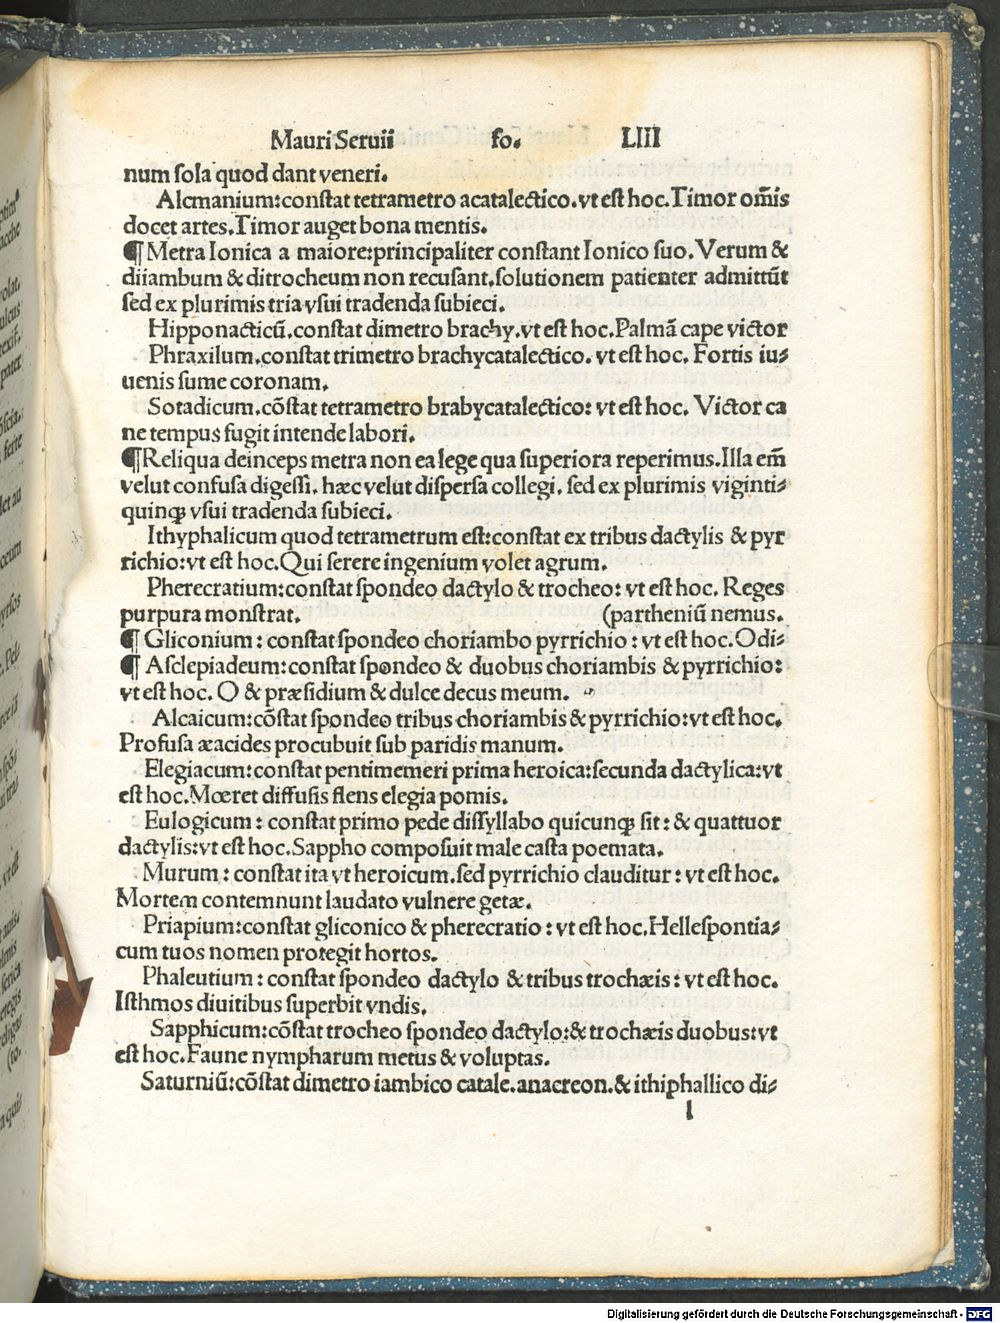 Mauri Seruii fo. LIII
num sola quod dant veneri.
Alcmanium:constat tetrametro acatalectico.vt est hoc.Timor om̄is
docet artes.Timor auget bona mentis.
¶ Metra Ionica a maiore:principaliter constant Ionico suo.Verum &
diiambum & ditrocheum non recusant.solutionem patienter admittūt
sed ex plurimis tria vsui tradenda subieci.
Hipponacticū.constat dimetro brachy.vt est hoc.Palmā cape victor
Phraxilum.constat trimetro brachycatalectico. vt est hoc. Fortis iu⸗
uenis sume coronam.
Sotadicum.cōstat tetrametro brabycatalectico: vt est hoc. Victor ca
ne tempus fugit intende labori.
¶Reliqua deinceps metra non ea lege qua superiora reperimus.Illa em̄
velut confusa digessi. hæc velut dispersa collegi. sed ex plurimis viginti⸗
quinqꝫ vsui tradenda subieci.
Ithyphalicum quod tetrametrum est:constat ex tribus dactylis & pyr
richio:vt est hoc.Qui serere ingenium volet agrum.
Pherecratium:constat spondeo dactylo & trocheo: vt est hoc. Reges
purpura monstrat. (partheniū nemus.
¶ Gliconium : constat spondeo choriambo pyrrichio : vt est hoc.Odi⸗
¶ Asclepiadeum:constat spondeo & duobus choriambis & pyrrichio:
vt est hoc. O & præsidium & dulce decus meum.
Alcaicum:cōstat spondeo tribus choriambis & pyrrichio:vt est hoc.
Profusa æacides procubuit sub paridis manum.
Elegiacum:constat pentimemeri prima heroica:secunda dactylica:vt
est hoc.Mœret diffusis flens elegia pomis.
Eulogicum : constat primo pede dissyllabo quicunqꝫ sit : & quattuor
dactylis:vt est hoc.Sappho composuit male casta poemata.
Murum : constat ita vt heroicum.sed pyrrichio clauditur : vt est hoc.
Mortem contemnunt laudato vulnere getæ.
Priapium:constat gliconico & pherecratio : vt est hoc.Hellespontia⸗
cum tuos nomen protegit hortos.
Phaleutium : constat spondeo dactylo & tribus trochæis : vt est hoc.
Isthmos diuitibus superbit vndis.
Sapphicum:cōstat trocheo spondeo dactylo:& trochæis duobus:vt
est hoc.Faune nympharum metus & voluptas.
Saturniū:cōstat dimetro iambico catale.anacreon.& ithiphallico di⸗
l
Digitalisierung gefördert durch die Deutsche Forschungsgemeinschaft - DFG